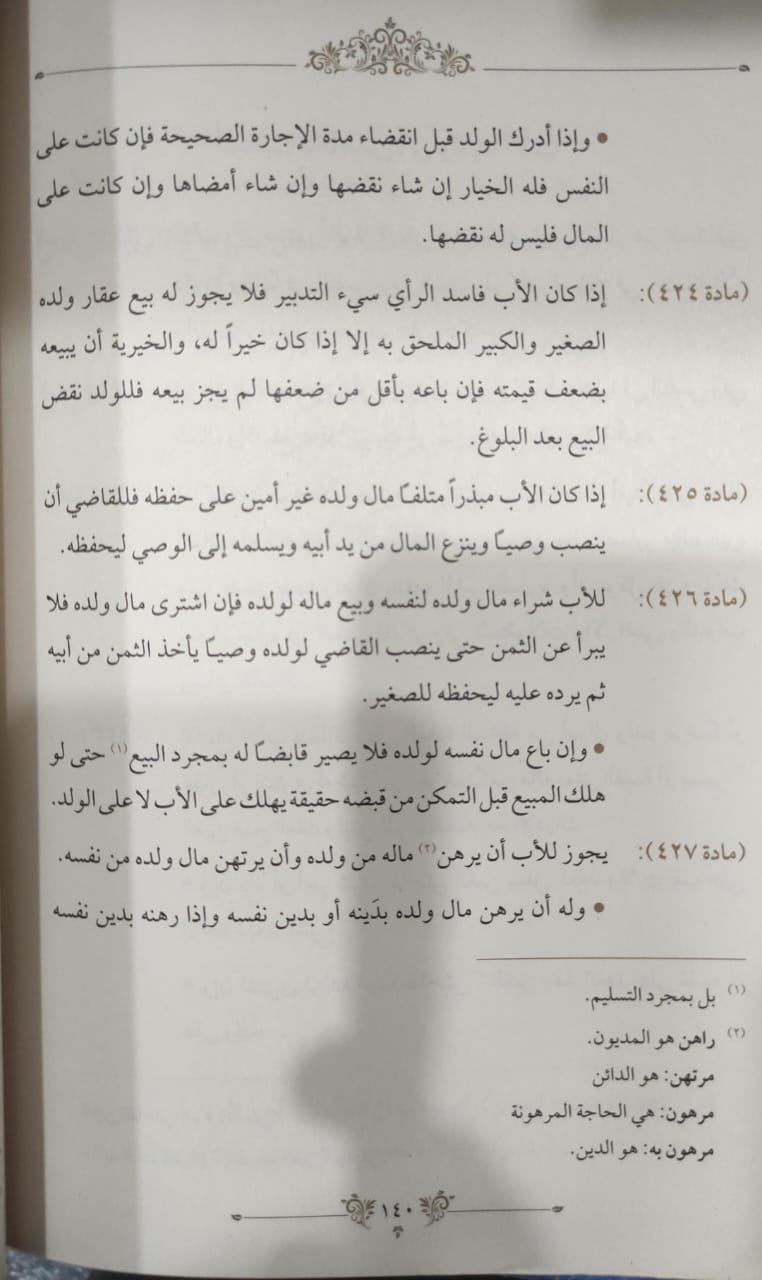 • وإذا أدرك الولد قبل انقضاء مدة الإجارة الصحيحة فإن كانت على
النفس فله الخيار إن شاء نقضها وإن شاء أمضاها وإن كانت على
المال فليس له نقضها.
(مادة ٤٢٤): إذا كان الأب فاسد الرأي سيء التدبير فلا يجوز له بيع عقار ولده
الصغير والكبير الملحق به إلا إذا كان خيراً له، والخيرية أن يبيعه
بضعف قيمته فإن باعه بأقل من ضعفها لم يجز بيعه فللولد نقض
البيع بعد البلوغ.
(مادة ٤٢٥): إذا كان الأب مبذراً متلفاً مال ولده غير أمين على حفظه فللقاضي أن
ينصب وصياً وينزع المال من يد أبيه ويسلمه إلى الوصي ليحفظه.
(مادة ٤٢٦): للأب شراء مال ولده لنفسه وبيع ماله لولده فإن اشترى مال ولده فلا
يبرأ عن الثمن حتى ينصب القاضي لولده وصياً يأخذ الثمن من أبيه
ثم يرده عليه ليحفظه للصغير.
• وإن باع مال نفسه لولده فلا يصير قابضاً له بمجرد البيع(١) حتى لو
هلك المبيع قبل التمكن من قبضه حقيقة يهلك على الأب لا على الولد.
(مادة ٤٢٧): يجوز للأب أن يرهن(٢) ماله من ولده وأن يرتهن مال ولده من نفسه.
• وله أن يرهن مال ولده بدَينه أو بدين نفسه وإذا رهنه بدين نفسه
(١) بل بمجرد التسليم.
(٢) راهن هو المديون.
مرتهن: هو الدائن
مرهون: هي الحاجة المرهونة
مرهون به: هو الدين.
١٤٠